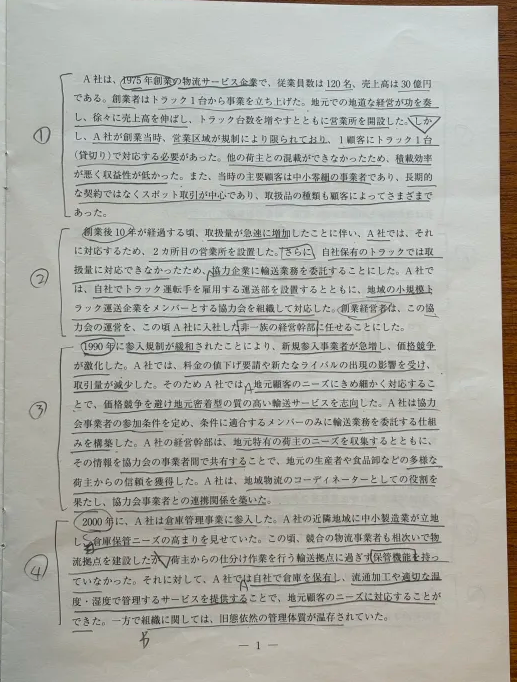 A社は、1975年創業の物流サービス企業で、従業員数は120名、売上高は30億円
である。創業者はトラック1台から事業を立ち上げた。地元での地道な経営が功を奏
し、徐々に売上高を伸ばし、トラック台数を増やすとともに営業所を開設した。しか
し、A社が創業当時、営業区域が規制により限られており、1顧客にトラック1台
(貸切り)で対応する必要があった。他の荷主との混載ができなかったため、積載効率
が悪く収益性が低かった。また、当時の主要顧客は中小零細の事業者であり、長期的
な契約ではなくスポット取引が中心であり、取扱品の種類も顧客によってさまざまで
あった。
①
創業後10年が経過する頃、取扱量が急速に増加したことに伴い、A社では、それ
に対応するため、2カ所目の営業所を設置した。さらに、自社保有のトラックでは取
扱量に対応できなかったため、協力企業に輸送業務を委託することにした。A社で
は、自社でトラック運転手を雇用する運送部を設置するとともに、地域の小規模ト
ラック運送企業をメンバーとする協力会を組織して対応した。創業経営者は、この協
力会の運営を、この頃A社に入社した非一族の経営幹部に任せることにした。
②
1990年に参入規制が緩和されたことにより、新規参入事業者が急増し、価格競争
が激化した。A社では、料金の値下げ要請や新たなライバルの出現の影響を受け、
取引量が減少した。そのためA社では、地元顧客のニーズにきめ細かく対応するこ
とで、価格競争を避け地元密着型の質の高い輸送サービスを志向した。A社は協力
会事業者の参加条件を定め、条件に適合するメンバーのみに輸送業務を委託する仕組
みを構築した。A社の経営幹部は、地元特有の荷主のニーズを収集するとともに、
その情報を協力会の事業者間で共有することで、地元の生産者や食品卸などの多様な
荷主からの信頼を獲得した。A社は、地域物流のコーディネーターとしての役割を
果たし、協力会事業者との連携関係を築いた。
③
2000年に、A社は倉庫管理事業に参入した。A社の近隣地域に中小製造業が立地
し、倉庫保管ニーズの高まりを見せていた。この頃、競合の物流事業者も相次いで物
流拠点を建設したが、荷主からの仕分け作業を行う輸送拠点に過ぎず保管機能を持っ
ていなかった。それに対して、A社では自社で倉庫を保有し、流通加工や適切な温
度・湿度で管理するサービスを提供することで、地元顧客のニーズに対応することが
できた。一方で組織に関しては、旧態依然の管理体質が温存されていた。
④
— 1 —